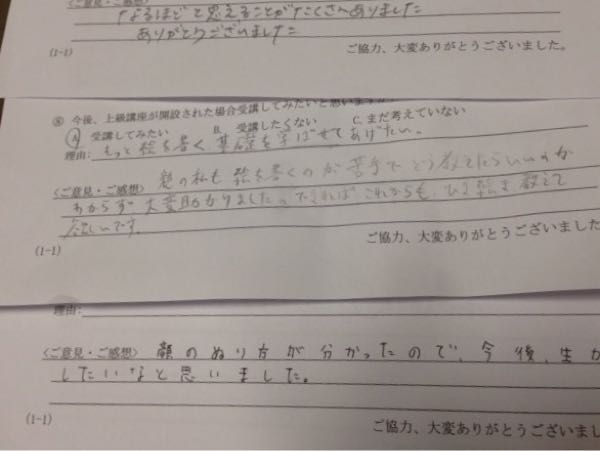 〈ご意見・ご感想〉
なるほどと思えることがたくさんありました
ありがとうございました
(1-1)
ご協力、大変ありがとうございました。
⑧ 今後、上級講座が開設された場合受講してみたいと思いますか
A 受講してみたい B. 受講したくない C. まだ考えていない
理由: もっと絵を書く基礎を学ばせてあげたい。
〈ご意見・ご感想〉 親の私も絵を書くのが苦手でどう教えたらいいのか
わからず大変助かりました。できればこれからも、 絵を教えて
欲しいです。
(1-1)
ご協力、大変ありがとうございました
理由:
〈ご意見・ご感想〉 顔のぬり方が分かったので、今後、生か
したいなと思いました。
(1-1)
ご協力、大変ありがとうございまし